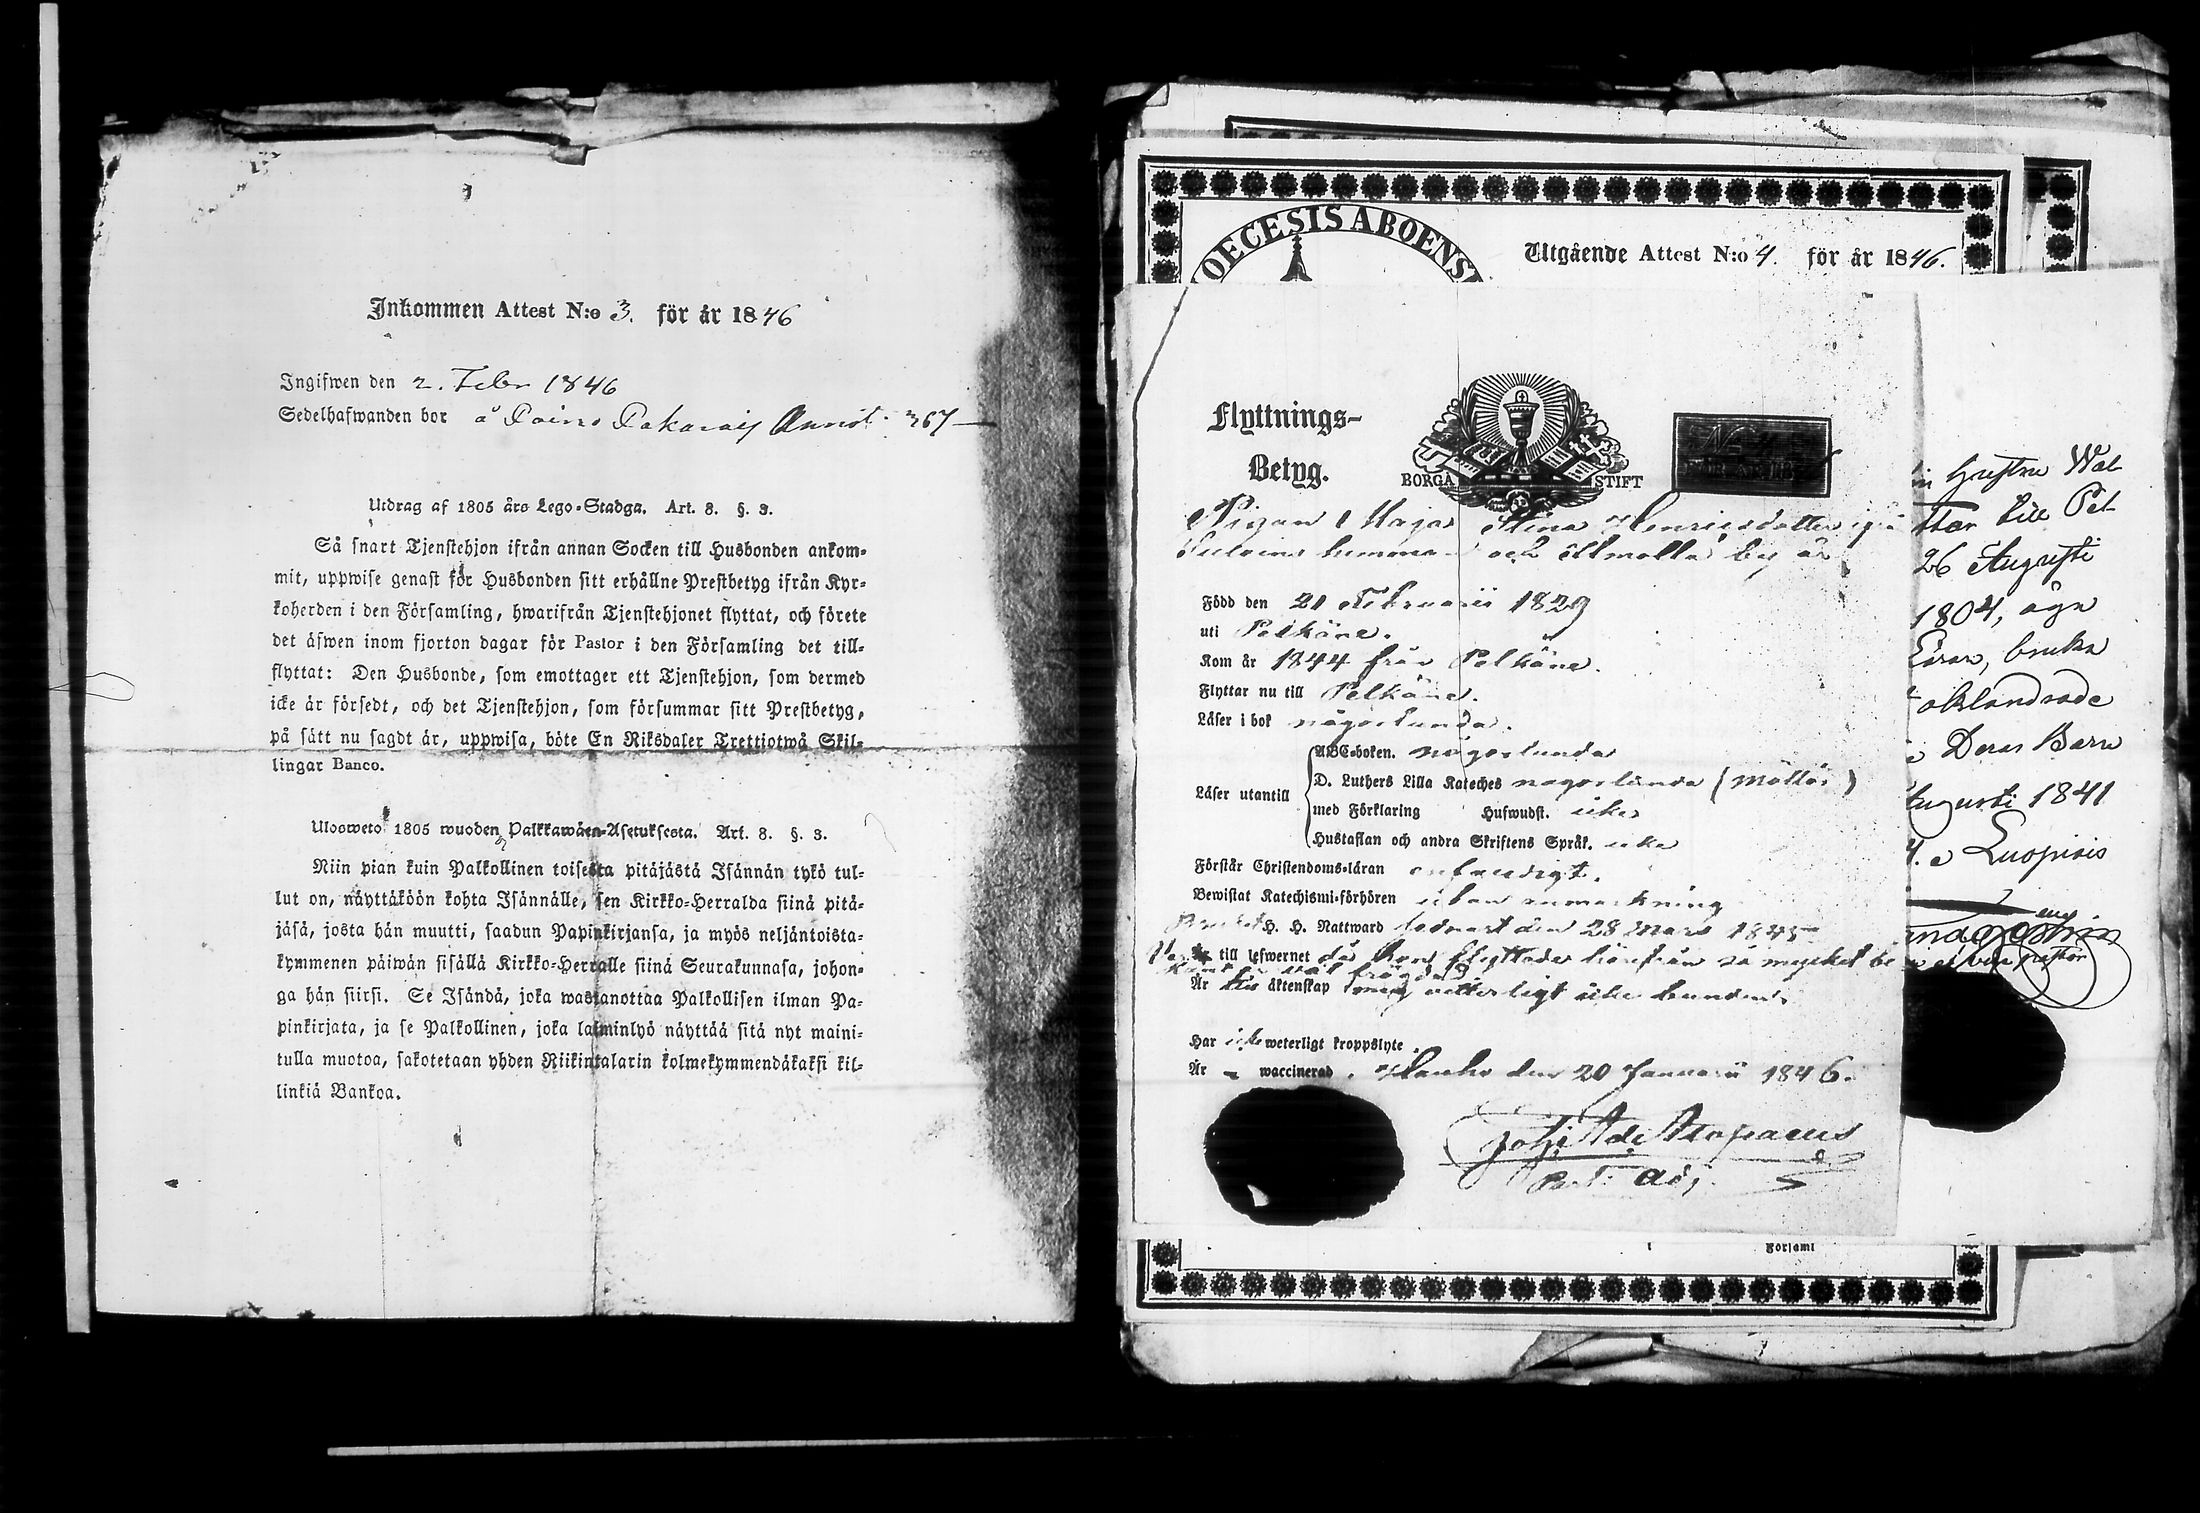 Inkommen Attest N:o 3. för år 1846
Ingifwen den 2. Febr 1846
Sedelhafwanden bor å Annot. 367
Utdrag af 1805 års Lego-Stadga. Art. 8. §. 3.
Så snart Tjenstehjon ifrån annan Socken till Husbonden ankom-
mit, uppwise genast för Husbonden sitt erhållne Prestbetyg ifrån Kyr-
koherden i den Församling, hwarifrån Tjenstehjonet flyttat, och förete
det äfwen inom fjorton dagar för Pastor i den Församling det till-
flyttat: Den Husbonde, som emottager ett Tjenstehjon, som dermed
icke är försedt, och det Tjenstehjon, som försummar sitt Prestbetyg,
på sätt nu sagdt är, uppwisa, böte En Riksdaler Trettiotwå Skil-
lingar Banco.
Ulosweto 1805 wuoden Palkkawäen-Asetuksesta. Art. 8. §. 3.
Niin pian kuin Palkollinen toisesta pitäjästä Isännän tykö tul-
lut on, näyttäköön kohta Isännälle, sen Kirkko-Herralda siinä pitä-
jäsä, josta hän muutti, saadun Papinkirjansa, ja myös neljäntoista-
kymmenen päiwän sisällä Kirkko-Herralle siinä Seurakunnasa, johon-
ga hän siirsi. Se Isändä, joka wastanottaa Palkollisen ilman Pa-
pinkirjata, ja se Palkollinen, joka laiminlyö näyttää sitä nyt maini-
tulla muotoa, sakotetaan yhden Riikintalarin kolmekymmendäkaksi kil-
linkiä Bankoa.
OECESIS ABOENS
Utgående Attest N:o 4. för år 1846.
Flyttnings-
Betyg.
BORGÅ STIFT
N:o
FÖR ÅR 18
Pigan Maja Stina Henriksdotter
och by är
Född den 21 Februarii 1829
uti Pelkäne.
Kom år 1844 från Pelkäne.
Flyttar nu till Pelkäne.
Läser i bok någorlunda.
Läser utantill
ABC-boken. någorlunda
D. Luthers Lilla Kateches någorlunda
med Förklaring Hufwudst. icke
Hustaflan och andra Skriftens Språk. icke
Förstår Christendoms-läran enfaldigt.
Bewistat Katechismi-förhören utan anmärkning
H. H. Nattward sednast den 28 Mars 1845
till lefwernet då hon flyttade härifrån så mycket
Är till äktenskap mig witterligt icke bunden.
Har icke weterligt kroppslyte.
Är waccinerad. Hauho den 20 Januarii 1846.
Past: Adj.
Hustru
till Pel
26 Augusti
1804, äga
bruka
oklandrade
Deras Barn
Augusti 1841
Luopiois
Forsaml